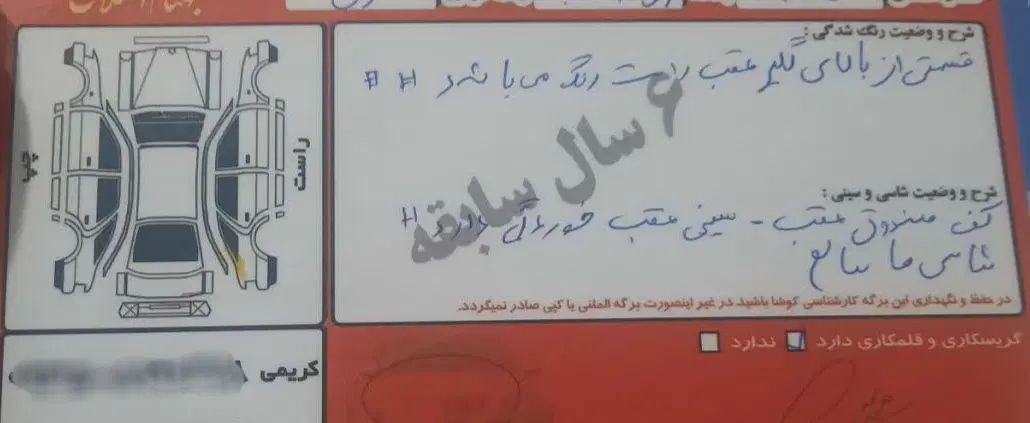 شرح و وضعیت رنگ شدگی :
قسمتی از بالای گلگیر عقب راست رنگ می باشد # #
۶ سال سابقه
شرح و وضعیت شاسی و سینی :
کف صندوق عقب - سینی عقب خوردگی دارد #
شاسی ها سالم
در حفظ و نگهداری این برگه کارشناسی کوشا باشید در غیر اینصورت برگه المثنی یا کپی صادر نمیگردد.
گریسکاری و قلمکاری دارد ندارد
راست
چپ
کریمی